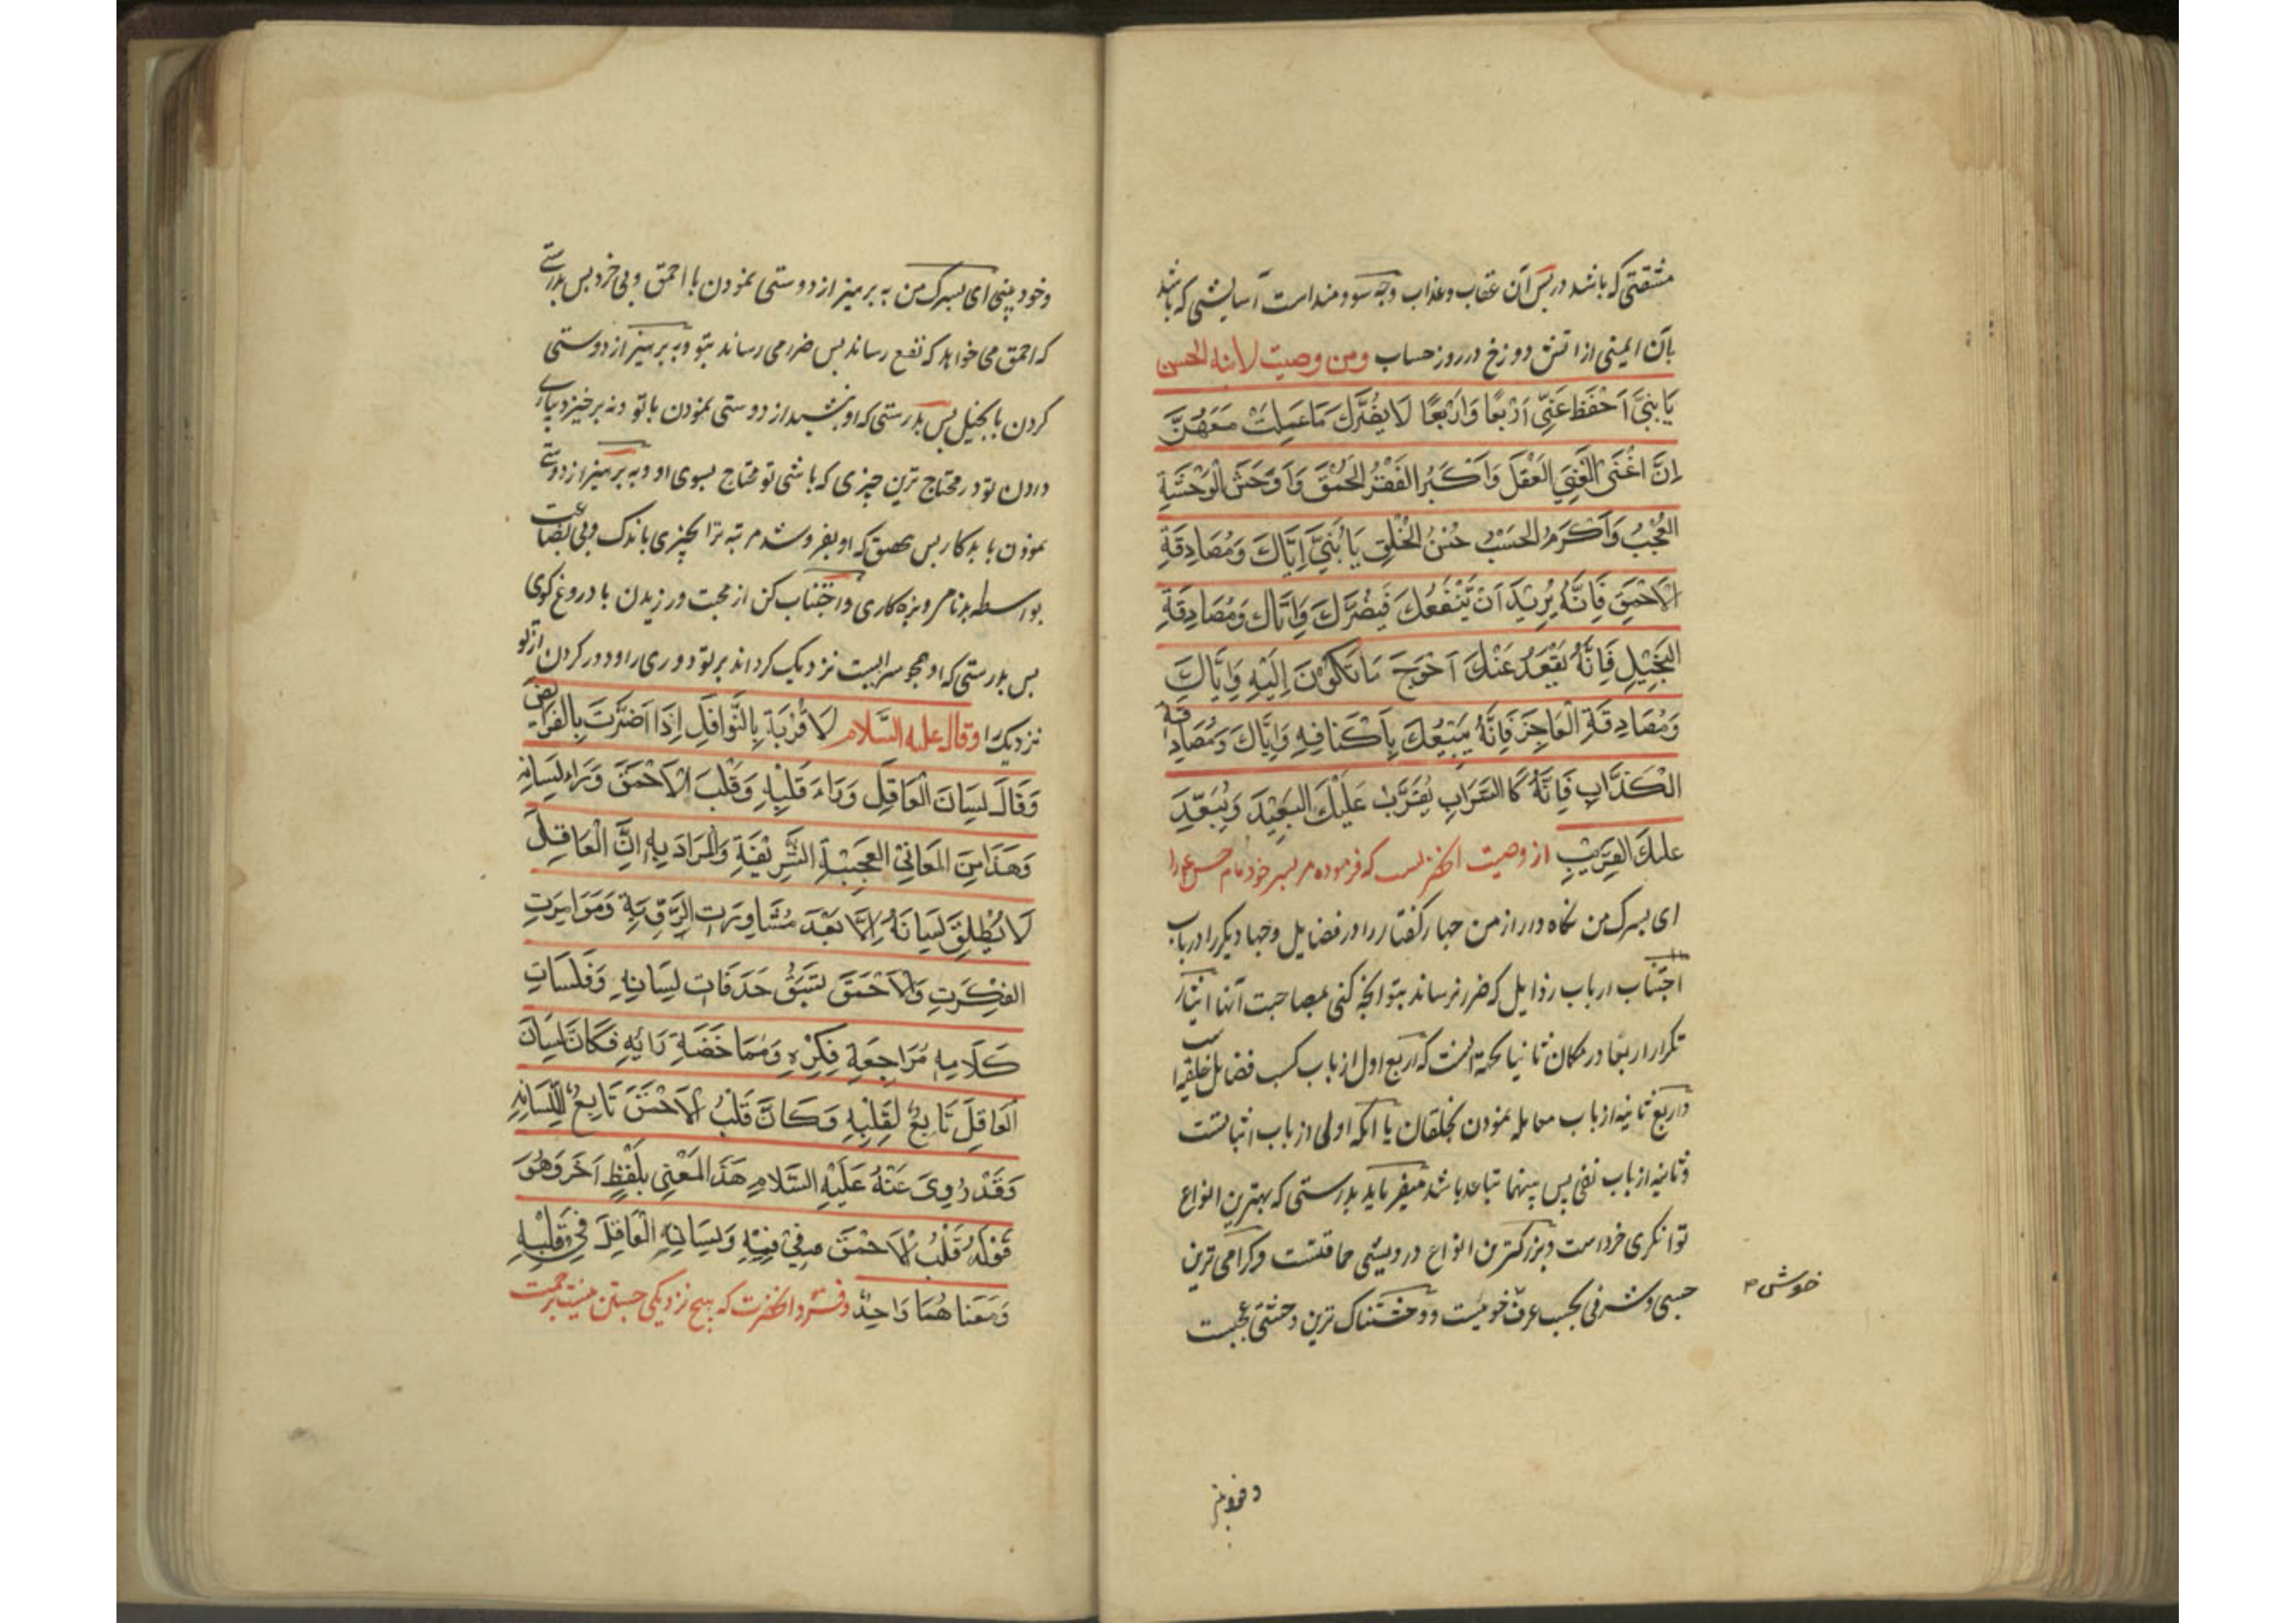 مشقتی که باشد در پس آن عقاب و عذاب و چه سودمند است آسایشی که باشد
بآن ایمنی از اتش دوزخ در روز حساب ومن وصیت لابنه الحسن
یَا بُنَیَّ اَحْفَظْ عَنِّی اَرْبَعًا وَاَرْبَعًا لَا یَضُرُّكَ مَا عَمِلْتَ مَعَهُنَّ
اِنَّ اَغْنَی الْغِنَی الْعَقْلُ وَاَكْبَرُ الفَقْرِ الحُمْقُ وَاَوْحَشُ الْوَحْشَةِ
العُجْبُ وَاَكْرَمُ الحَسَبِ حُسْنُ الخُلْقِ یَا بُنَیَّ اِیَّاكَ وَمُصَادِقَةِ
الْاَحْمَقِ فَاِنَّهُ یُرِیْدُ اَنْ یَّنْفَعَكَ فَیَضُرُّكَ وَاِیَّاكَ وَمُصَادِقَةِ
البَخِیْلِ فَاِنَّهُ یَقْعُدُ عَنْكَ اَحْوَجَ مَا تَكُوْنَ اِلَیْهِ وَاِیَّاكَ
وَمُصَادِقَةِ الْعَاجِزِ فَاِنَّهُ یَبِیْعُكَ بِاَكْنَافِهِ وَاِیَّاكَ وَمُصَادِقَةِ
الْكَذَّابِ فَاِنَّهُ كَالسَّرَابِ یُقَرِّبُ عَلَیْكَ البَعِیْدَ وَیُبَعِّدُ
عَلَیْكَ القَرِیْبَ از وصیت انحضرتست که فرموده مر پسر خود امام حسن ع را
ای پسرک من نگاه دار از من چهار گفتار را در فضایل و چهار دیگر را در باب
اجتناب ارباب رذایل که ضرر نرساند بتو انچه کنی بمصاحبت آنها
تکرار اربعا در مکان ثانیا بجهة انست که اربع اول از باب کسب فضایل خلقیه است
و اربع ثانیه از باب معامله نمودن بخلقان یا انکه اولی از باب اثباتست
و ثانیه از باب نفی پس بینهما تباعد باشد میفرماید بدرستی که بهترین انواع
توانگری خرد است و بزرگترین انواع درویشی حماقتست و گرامی ترین
حسبی و شرفی بحسب عرف خوئیست و وحشتناک ترین وحشتی عجبست
خوش
وخود بینی ای پسرک من به پرهیز از دوستی نمودن با احمق و بی خرد پس بدرستی
که احمق می خواهد که نفع رساند پس ضرر می رساند بتو و به پرهیز از دوستی
کردن با بخیل پس بدرستی که او بنشیند از دوستی نمودن با تو و نه برخیزد بیاری
دادن تو در محتاج ترین چیزی که باشی تو محتاج بسوی او و به پرهیز از دوستی
نمودن با بدکار پس بتحقیق که او بفروشد مر ترا بچیزی اندک و بی بضاعت
بواسطه بدنامی و بزه کاری و اجتناب کن از محبت ورزیدن با دروغ گوی
پس بدرستی که او همچو سرابیست نزدیک گرداند بر تو دوری را و دور کردن از تو
نزدیک را وقال علیه السَّلام لَا قُرْبَةَ بِالنَّوَافِلِ اِذَا اَضَرَّتْ بِالفَرَائِضِ
وَقَالَ لِسَانُ الْعَاقِلِ وَرَاءَ قَلْبِهِ وَقَلْبُ الْاَحْمَقِ وَرَاءَ لِسَانِهِ
وَهَذَا مِنَ المَعَانِیْ العَجِیْبَةِ الشَّرِیْفَةِ وَالْمُرَادُ بِهِ اِنَّ الْعَاقِلَ
لَا یُطْلِقُ لِسَانَهُ اِلَّا بَعْدَ مُشَاوِرَتِ الرَّوِیَّةِ وَمَوَامِرَتِ
الفِكْرَتِ وَالْاَحْمَقَ تَسْبَقُ حَذَفَاتِ لِسَانِهِ وَفَلَسَاتِ
كَلَامِهِ مُرَاجِعَةِ فِكْرِهِ وَمُمَاخَضَةِ رَائِهِ فَكَانَ لِسَانَ
العَاقِلِ تَابِعٌ لِقَلْبِهِ وَكَانَّ قَلْبُ الْاَحْمَقِ تَابِعٌ لِلِّسَانِهِ
وَقَدْ رُوِیَ عَنْهُ عَلَیْهِ السَّلَامِ هَذَ المَعْنِی بِلَفْظٍ اَخَرَ وَهُوَ
قَوْلُهُ قَلْبُ الْاَحْمَقِ فِیْ فِیْهِ وَلِسَانِهِ الْعَاقِلِ فِیْ قَلْبِهِ
وَمَعْنَاهُمَا وَاحِدٌ و فرمود انحضرت که هیچ نزدیکی جستن نیست برحمت